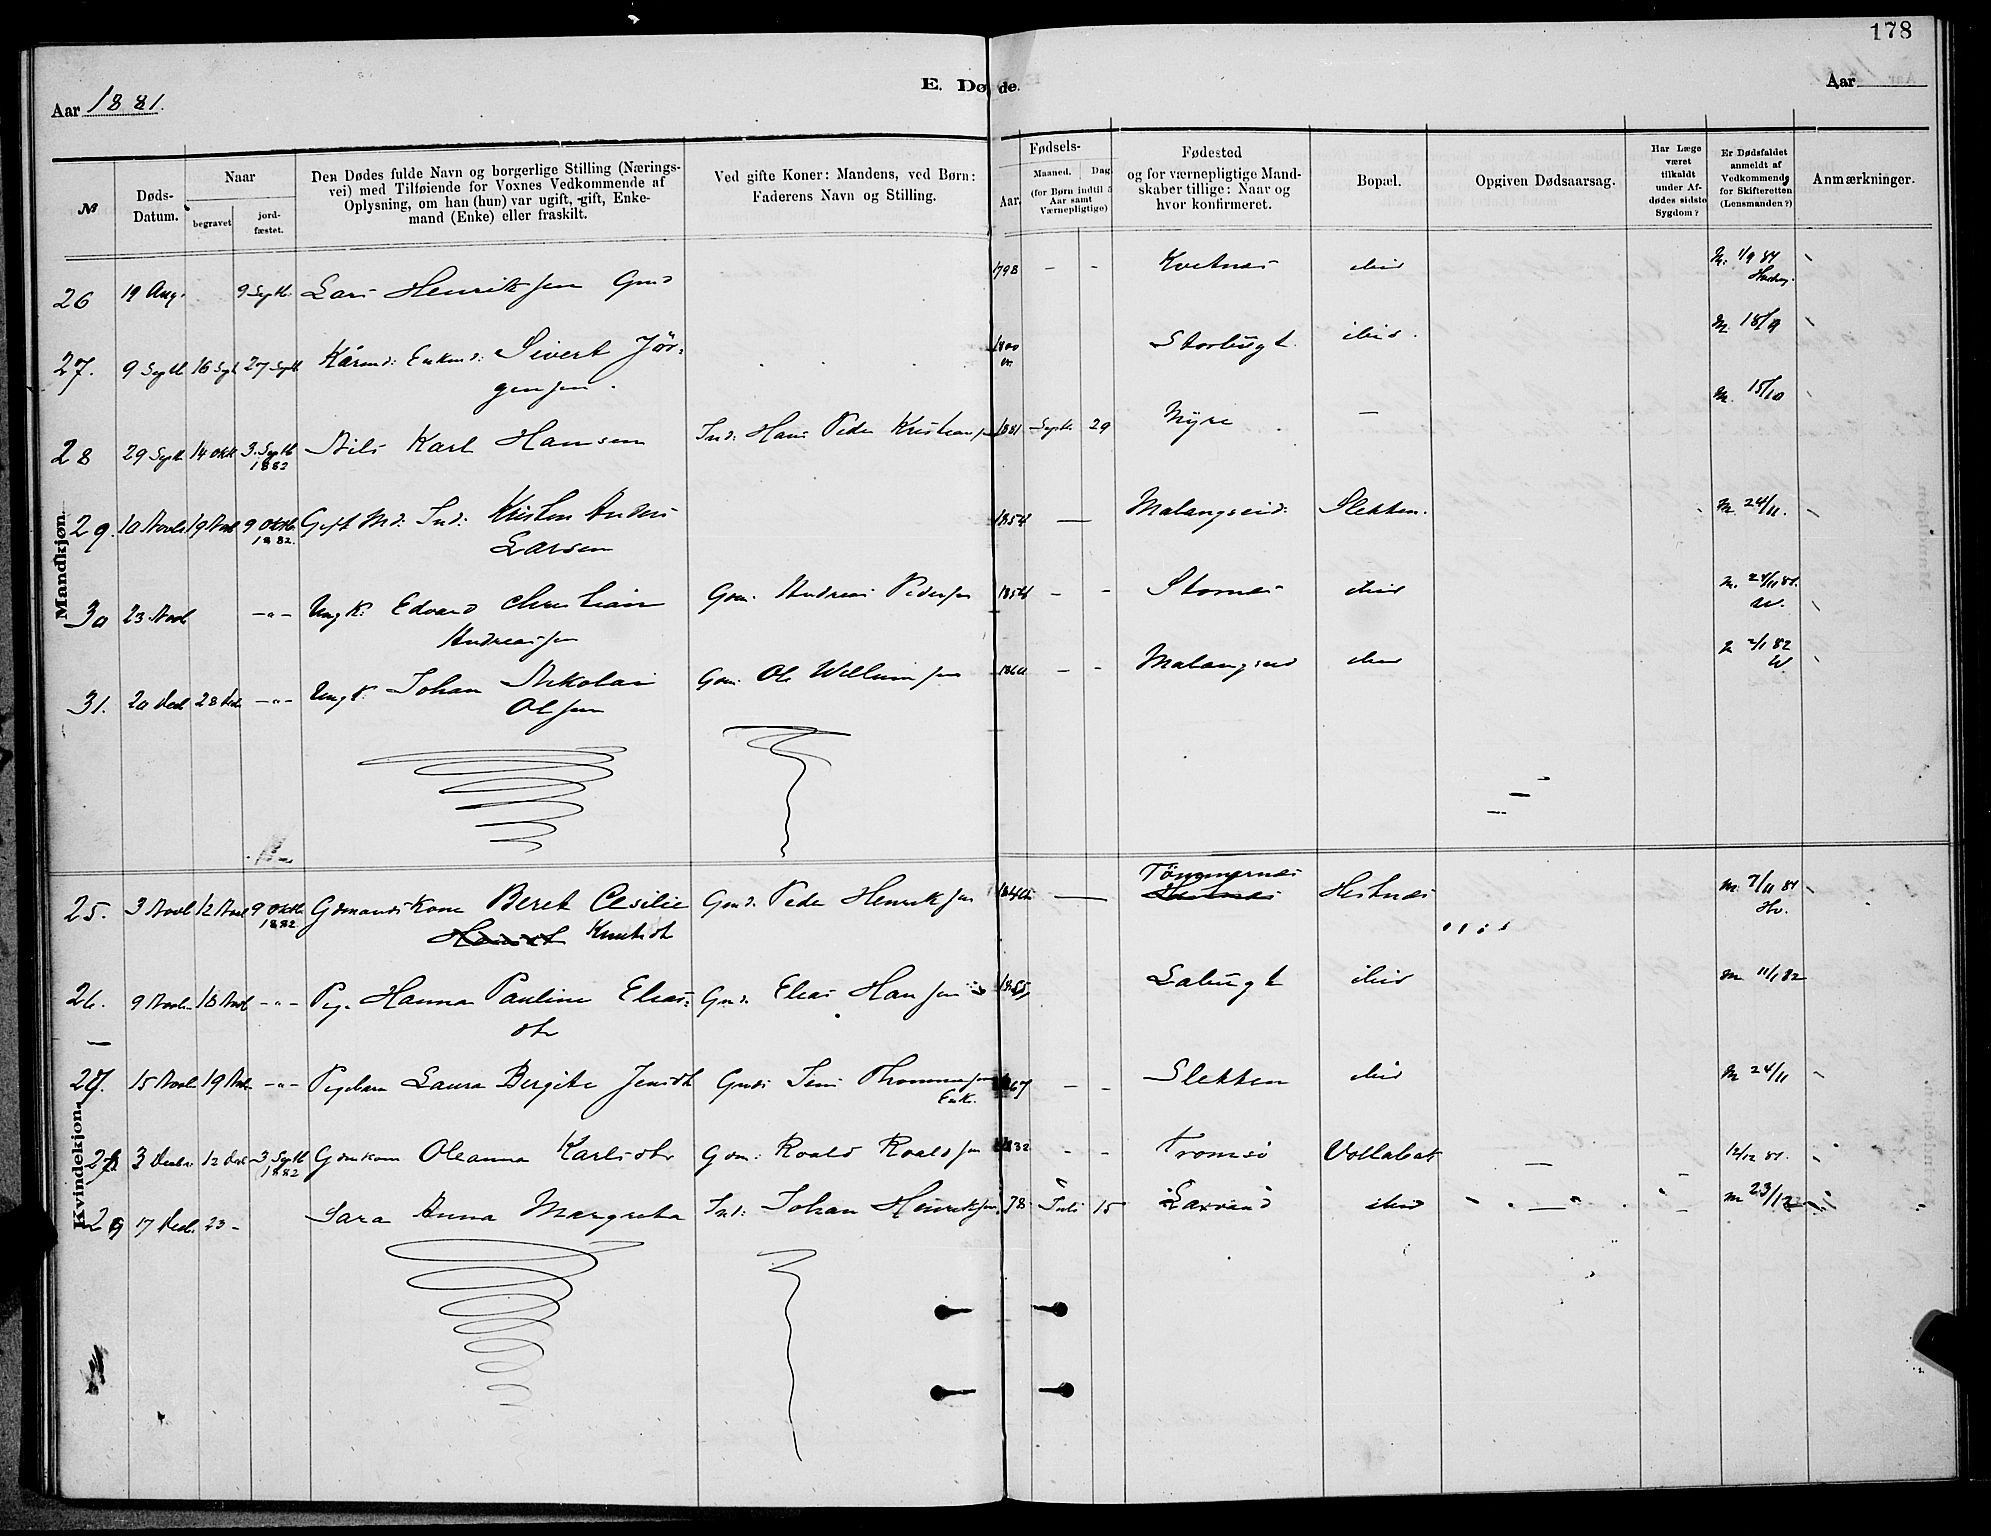 178
E. Døde.
Aar 1881.
Aar
№
Døds-Datum.
Naar
begravet
jord-fæstet.
Den Dødes fulde Navn og borgerlige Stilling (Nærings-
vei) med Tilføiende for Voxnes Vedkommende af
Oplysning, om han (hun) var ugift, gift, Enke-
mand (Enke) eller fraskilt.
Ved gifte Koner: Mandens, ved Børn:
Faderens Navn og Stilling.
Fødsels-
Aar.
Maaned.
Dag.
(for Børn indtil 5
Aar samt
Værnepligtige)
Fødested
og for værnepligtige Mand-
skaber tillige: Naar og
hvor konfirmeret.
Bopæl.
Opgiven Dødsaarsag.
Har Læge
været
tilkaldt
under Af-
dødes sidste
Sygdom?
Er Dødsfaldet
anmeldt af
Vedkommende
for Skifteretten
(Lensmanden?)
Anmærkninger.
Mandkjøn.
26 19 Aug. 9 Septb. Lars Henriksen Gmd 1798 - - Kvetnes ibid M. 1/9 81
27. 9 Septb 16 Sept 27 Septb Kårmd: Enkmd: Sivert Jör- 1800 Storbugt. ibid. M. 18/9
gensen.
28 29 Septb 14 Oktb 3. Septb Nils Karl Hansen Ind: Hans Peder Kristiansen 1881 Septb. 29 Myre — M. 15/10
1882
29. 10 Novb 19 Novb 9 Oktb. Gift Md: Ind: Kristen Anders 1854 — Malangseid. Sletten. M. 24/11.
1882. Larsen
30 23 Novb -"- Ungk: Edvard Christian Gm. Andreas Pedersen 1854 - - Stornes ibid M. 24/11 81.
Andreassen W.
31. 20 Decb 28 Decb -"- Ungk: Johan Nikolai Gm. Ole Willumsen - - Malangseid ibid 2/1 82
Olsen W.
Kvindekjøn.
25. 3 Novb 12 Novb 9 Oktb. Gdmandskone Beret Cesilie Gmd. Peder Henriksen — Tömmernes Hestnes M. 7/11 81
1882 Knutsdt Hv.
26. 9 Novb. 18 Novb -"- Pig. Hanna Pauline Elias- Gmd. Elias Hansen Labugt ibid M 11/1 82
dtr
27. 15 Novb 19 Novb -"- Pigebarn Laura Bergite Jensdt Gmd: Jens Thommassen 67 - - Sletten ibid M 24/11
Enk.
28 3 Decbr 12 Decb 3 Septb Gmkone Oleanna Karlsdtr Gm: Roald Roaldsen 32 - - Tromsö Vollabak — 12/12 81.
1882
29 17 Decb. 23 - Sara Anna Margreta Ind: Johan Henriksen 78 Juli 15 Laxvand ibid — M 23/12